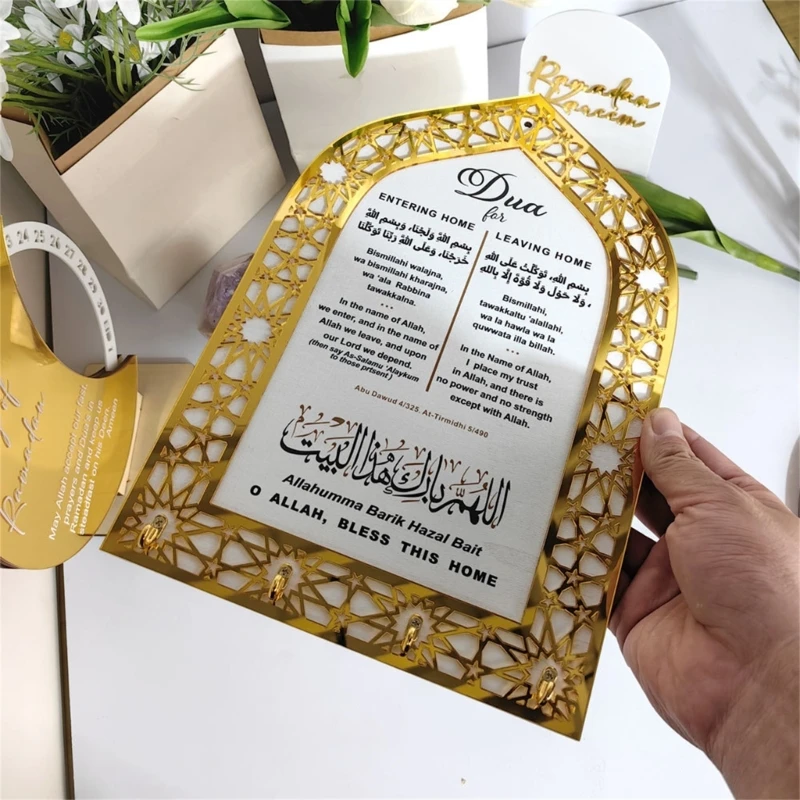 Ramadan
Kareem
Dua
for
ENTERING HOME
بِسْمِ اللَّهِ وَلَجْنَا، وَبِسْمِ اللَّهِ
خَرَجْنَا، وَعَلَى اللَّهِ رَبِّنَا تَوَكَّلْنَا
Bismillahi walajna,
wa bismillahi kharajna,
wa 'ala Rabbina
tawakkalna.
In the name of Allah,
we enter, and in the name of
Allah we leave, and upon
our Lord we depend.
(then say As-Salamu 'Alaykum
to those prtsent]
LEAVING HOME
بِسْمِ اللَّهِ، تَوَكَّلْتُ عَلَى اللَّهِ
، وَلَا حَوْلَ وَلَا قُوَّةَ إِلَّا بِاللَّهِ
Bismillahi,
tawakkaltu 'alallahi,
wa la hawla wa la
quwwata illa billah.
In the Name of Allah,
I place my trust
in Allah, and there is
no power and no strength
except with Allah.
Abu Dawud 4/325, At-Tirmidhi 5/490
اللهم بارك هذا البيت
Allahumma Barik Hazal Bait
O ALLAH, BLESS THIS HOME
24 25 26 27 28 29 30
Ramadan
May Allah accept our fast,
prayers and Duas in
Ramadan and keep us
steadfast on his Deen.
Ameen